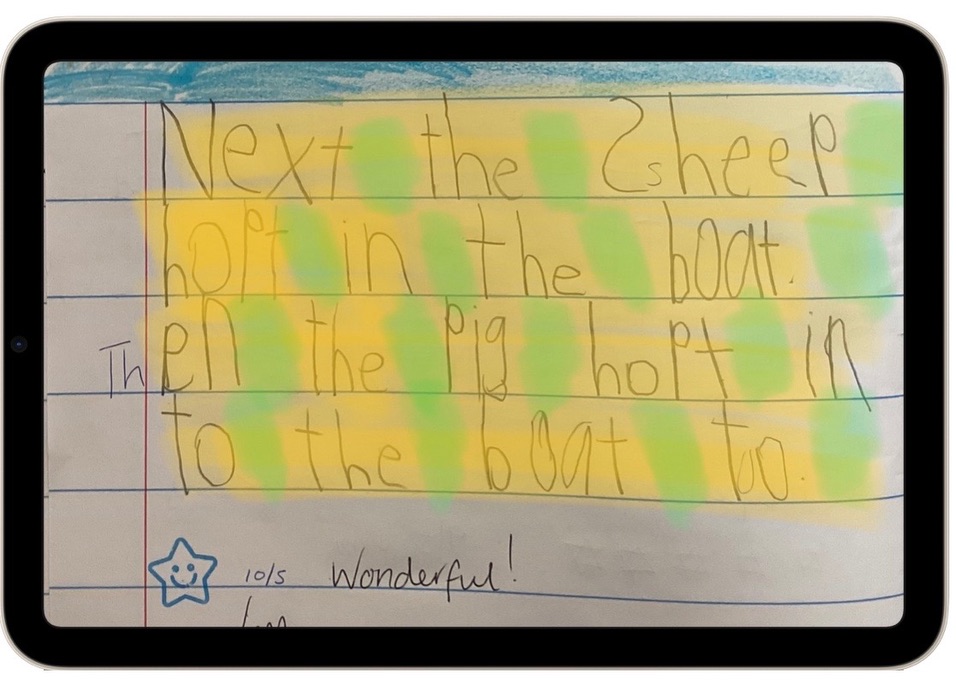 Next the Ssheep
hopt in the boat.
Then the pig hopt in
to the boat too.
10/5 Wonderful!